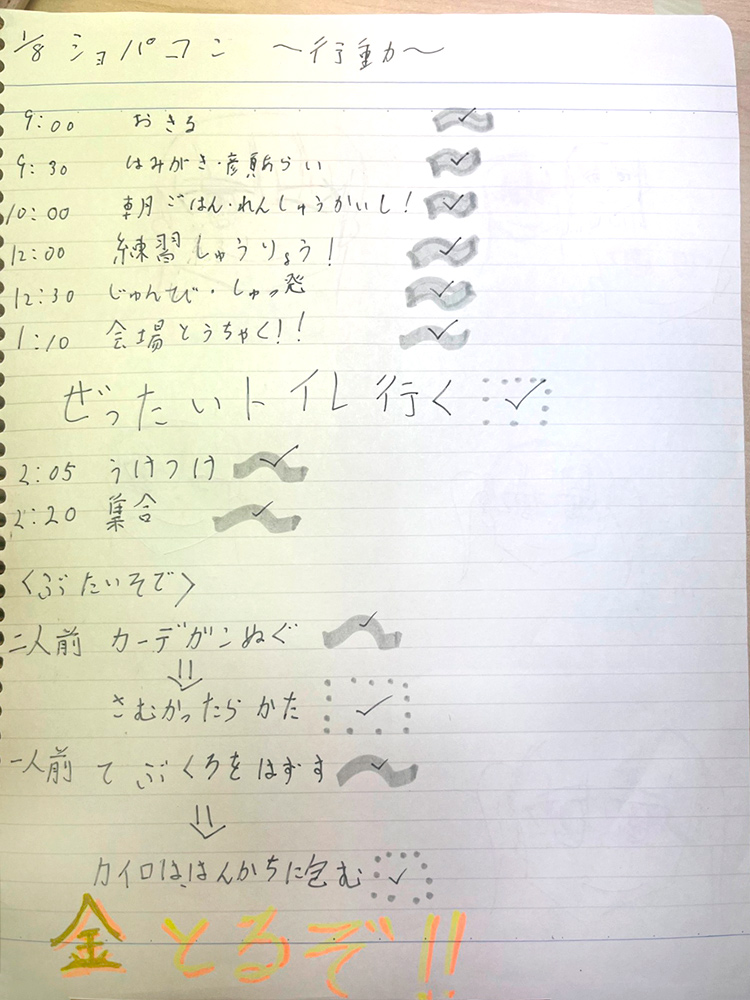 1/8 ショパコン 〜行動〜
9:00 おきる
9:30 はみがき・顔あらい
10:00 朝ごはん・れんしゅうかいし!
12:00 練習しゅうりょう!
12:30 じゅんび・しゅっ発
1:10 会場とうちゃく!!
ぜったいトイレ行く
2:05 うけつけ
2:20 集合
〈ぶたいそで〉
二人前 カーデガンぬぐ
⇓
さむかったらかた
一人前 てぶくろをはずす
⇓
カイロは、はんかちに包む
金とるぞ!!